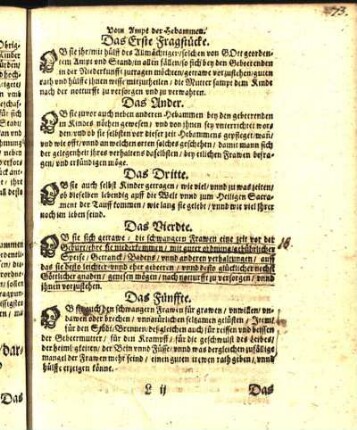 73.
Vom Ampt der Hebammen.
Das Erste Fragstücke.
OB sie ihr/mit hülff des Allmächtigen/solchen von GOtt geordne-
tem Ampt und Stand/in allen fällen/so sich bey den Geberenden
in der Niederkunfft zutragen möchten/getrawe vorzustehen/guten
rath und hülffe ihnen mitzutheilen/die Mutter sampt dem Kinde
nach der notturfft zu versorgen und zu verwahren.
Das Ander.
OB sie zuvor auch neben anderen Hebammen bey den geberenden
in Kindes nöthen gewesen/und von ihnen sey unterrichtet wor-
den und ob sie selbsten vor dieser zeit Hebammens gepfleget/wañ/
und wie offt/unnd an welchen orten solches geschehen/damit mann sich
der gelegenheit ihres verhaltens daselbsten/bey etlichen Frawen befra-
gen/und erfündigen möge.
Das Dritte.
OB sie auch selbst Kinder getragen/wie viel/unnd zu was zeiten/
ob dieselben lebendig auff die Welt unnd zum Heiligen Sacra-
ment der Tauff kommen/wie lang sie gelebt/unnd wie viel ihrer
noch im leben seind.
Das Vierdte.
OB sie sich getrawe/die schwangern Frawen eine zeit vor der
Geburt/eher sie niederkommen/mit guter ordnung/gebührlicher
Speise/Getranck/Badens/unnd anderen verhaltungen/auff
das sie desto leichter unnd eher geberen/unnd desto glücklicher nechst
Göttlicher gnaden/genesen mögen/nach notturfft zu versorgen/unnd
ihnen vorzustehen.
Das Fünffte.
OB sie auch den schwangern Frawen für grawen/unwillen/un-
dawen oder brechen/unnatürlichen seltzamen gelüsten/
für den Sodt/Brennen/desgleichen auch für reissen und beissen
der Gebermutter/für den Krampff/für die geschwulst des leibes/
der heimligkeiten/der Bein unnd Füsse/unnd was dergleichen zufällige
mangel der Frawen mehr seind/einen guten getrewen rath geben/unnd
hülffe erzeigen könne.
L ij
Das